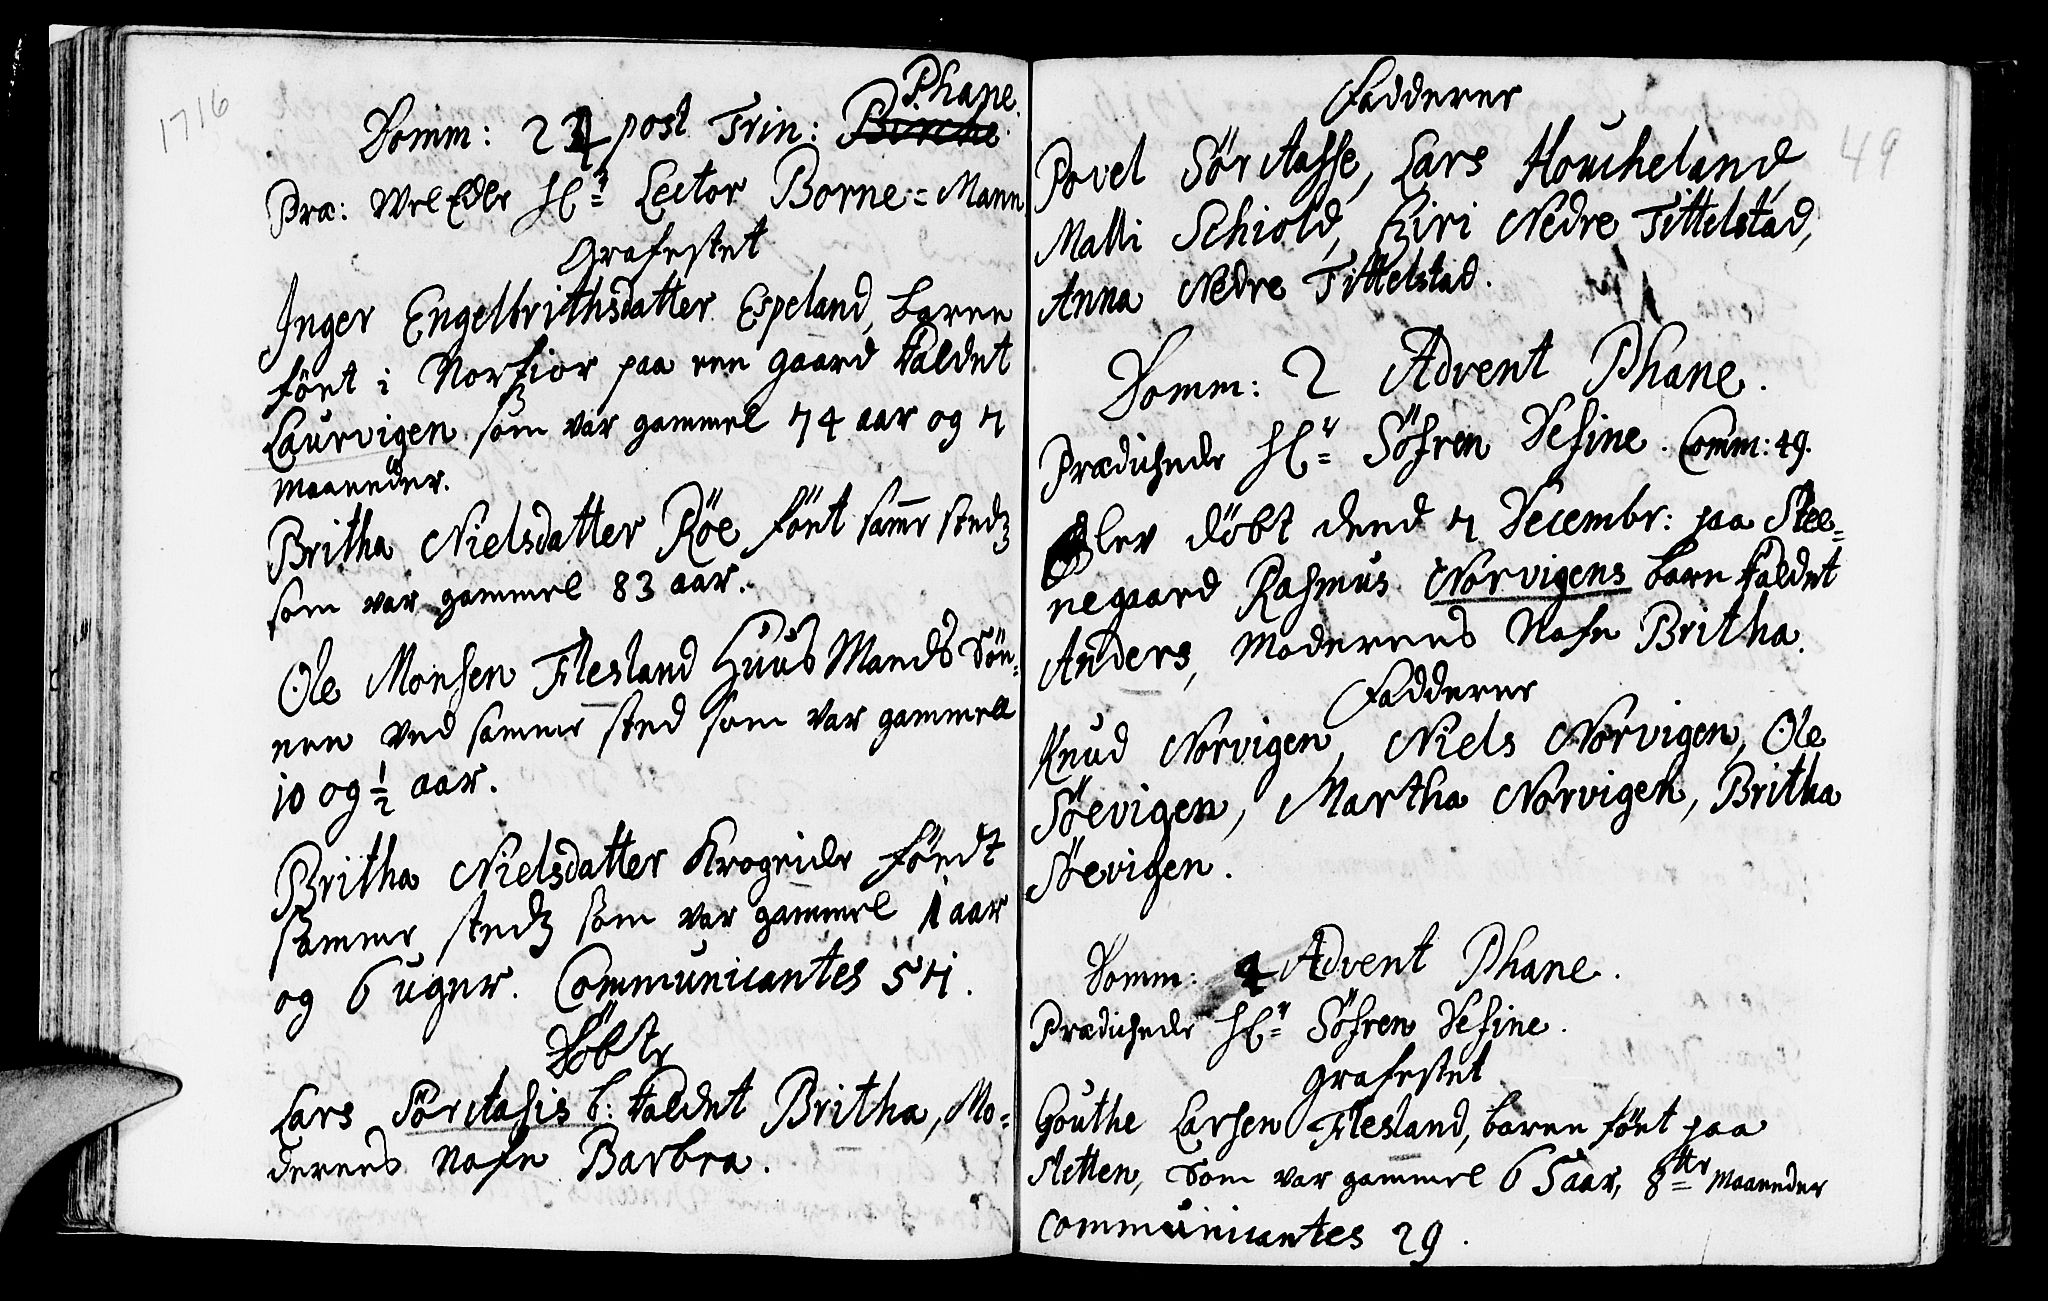 1716
Phane.
Domm: 24 post Trin: Birche.
Præ: Wel Edle Hr= Lector Borne=Mann
Grafestet
Inger Engelbrithsdatter Espeland, baren
fönt i Norfior paa een gaard Kaldet
Laurvigen som var gammel 74 aar og 7
Maaneder.
Britha Nielsdatter Röe fönt samme stedz
som var gammel 83 aar.
Ole Monsen Flesland Huus Mands Sön=
nen ved samme sted som var gammell
10 og 1/2 aar.
Britha Nielsdatter Krogeide föndt
samme stedz som var gammel 1 aar
og 6 uger. Communicantes 57.
Döbte
Lars Sör Aasis b: Kaldet Britha, Mo=
derens Nafn Barbra.
Fadderer
49
Povel Sör Aasse, Lars Houcheland,
Malli Schiold, Siri Nedre Tittelstad,
Anna Nedre Tittelstad.
Domm: 2 Advent Phane.
Prædichede Hr= Söfren Define. Comm: 49.
Blev döbt dend 7 Decembr: paa Stee=
negaard Rasmus Norvigens barn Kaldet
Anders, Moderens Nafn Britha.
Fadderer
Knud Norvigen, Niels Norvigen, Ole
Söevigen, Martha Norvigen, Britha
Söevigen.
Domm: 4 Advent Phane.
Prædichede Hr= Söfren Define.
Grafestet
Gouthe Larsen Flesland, baren fönt paa
Sletten, som var gammel 65 aar, 8tte= Maaneder
Communicantes 29.